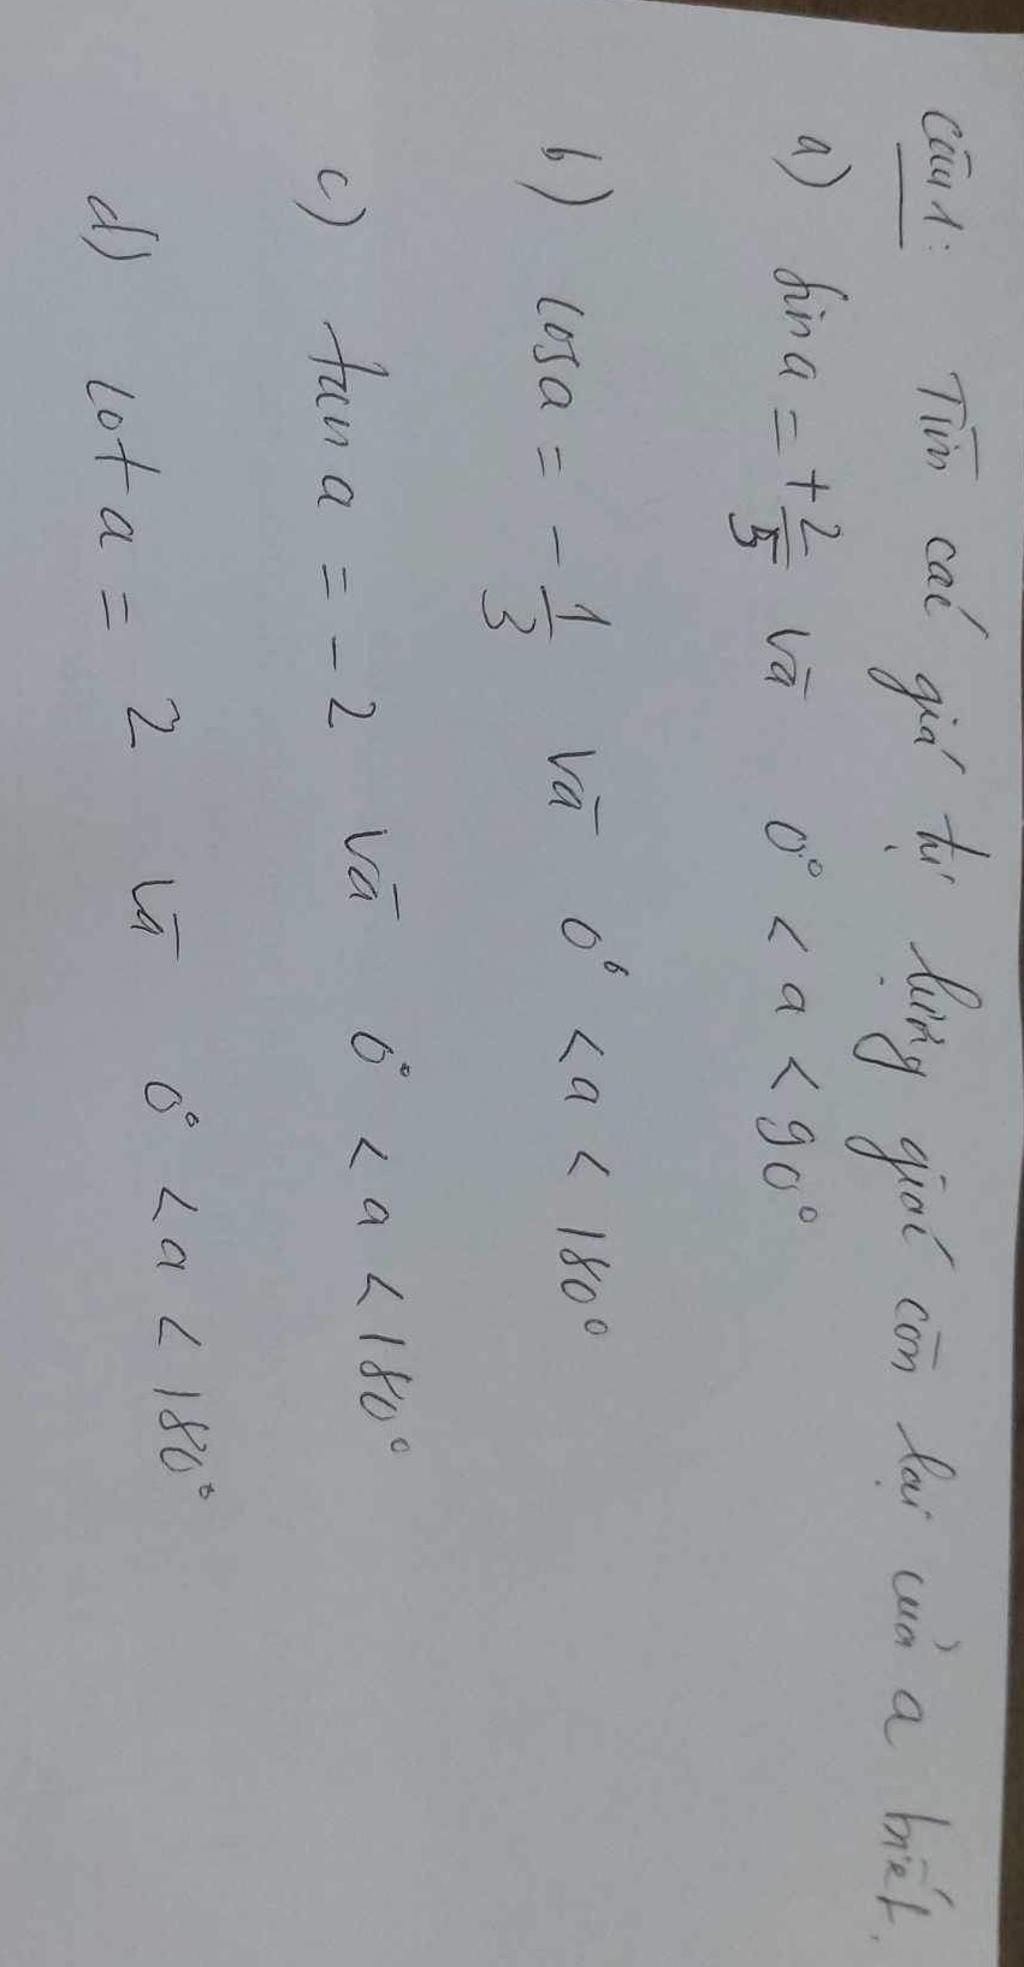 Câu 1: Tìm các giá trị lượng giác còn lại của a biết.
a) sin a = + 2/5 và 0° < a < 90°
b) cos a = - 1/3 và 0° < a < 180°
c) tan a = - 2 và 0° < a < 180°
d) cot a = 2 và 0° < a < 180°